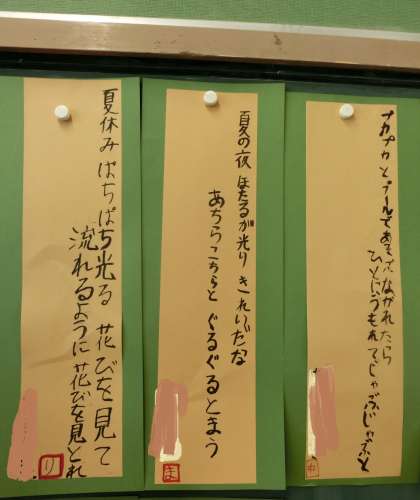 プカプカとプールであそび ながれたら
ひとにうもれてじゃぶじゃぶと
中
夏の夜 ほたるが光り きれいだな
あちらこちらと ぐるぐるとまう
ま
夏休み ぱちぱち光る 花びを見て
流れるように 花びを見とれ
り